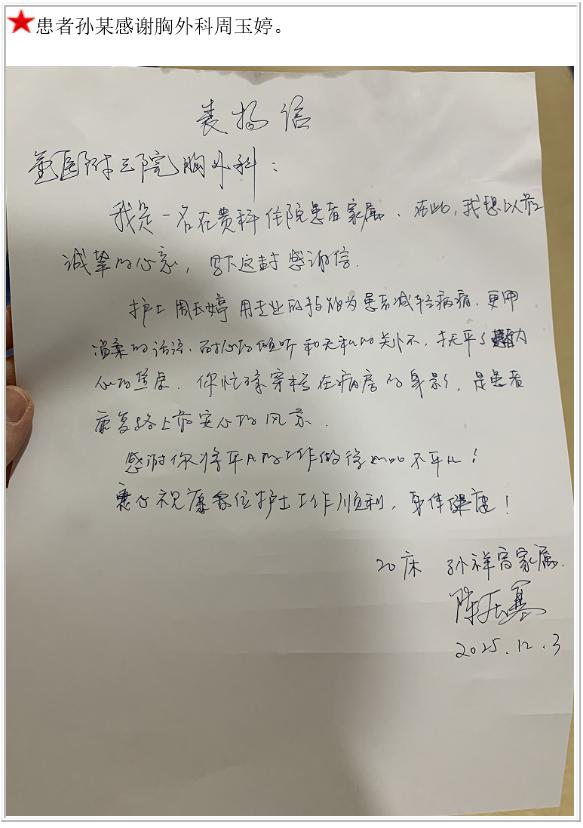 ★患者孙某感谢胸外科周玉婷。
表扬信
医附三院胸外科：
我是一名在贵科住院患者家属、在此，我想以最
诚挚的心意，写下这封感谢信.
护士周玉婷用专业的技能为患者减轻病痛，更用
温柔的话语、耐心的倾听和无私的关怀，抚平了内
心的焦虑. 你忙碌穿梭在病房的身影，是患者
康复路上最安心的风景.
感谢你将平凡的工作做得如此不平凡！
衷心祝愿各位护士工作顺利，身体健康！
20床 孙祥 家属.
2025.12.3